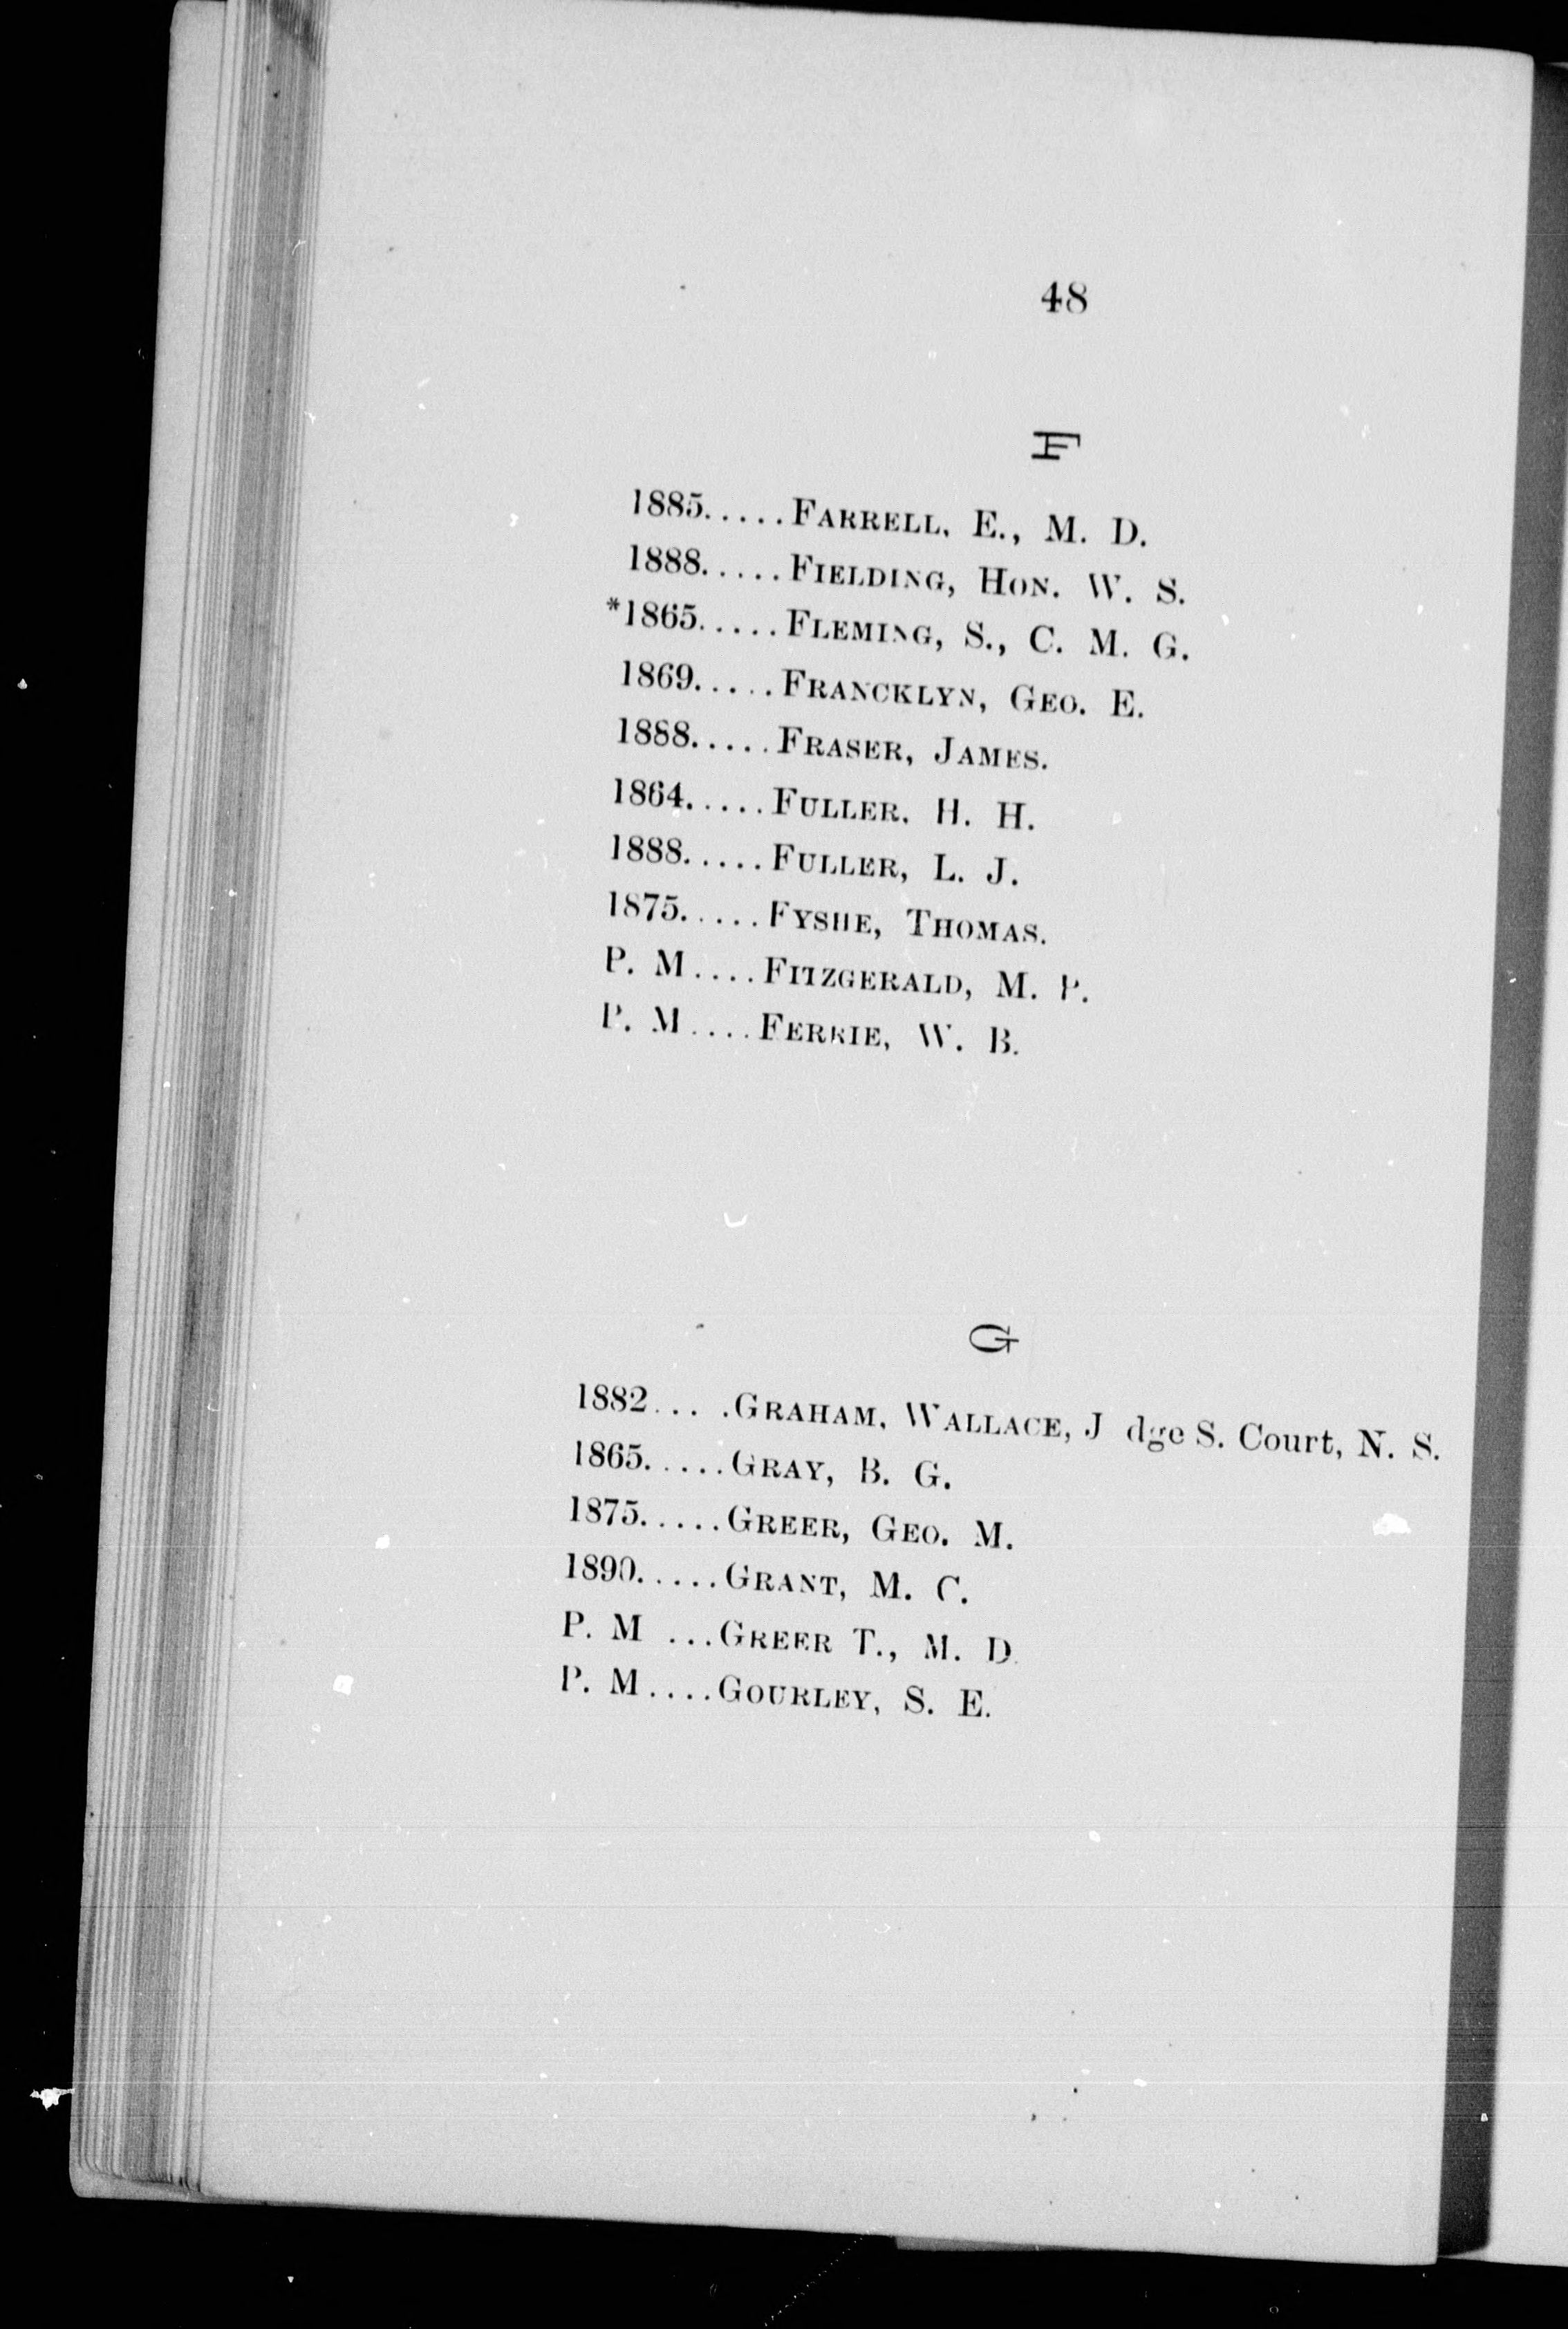 48
F
1885.....FARRELL, E., M. D.
1888.....FIELDING, HON. W. S.
*1865.....FLEMING, S., C. M. G.
1869.....FRANCKLYN, GEO. E.
1888.....FRASER, JAMES.
1864.....FULLER, H. H.
1888.....FULLER, L. J.
1875.....FYSHE, THOMAS.
P. M....FITZGERALD, M. P.
P. M....FERRIE, W. B.
G
1882... .GRAHAM, WALLACE, J dge S. Court, N. S.
1865.....GRAY, B. G.
1875.....GREER, GEO. M.
1890.....GRANT, M. C.
P. M ...GREER T., M. D.
P. M....GOURLEY, S. E.